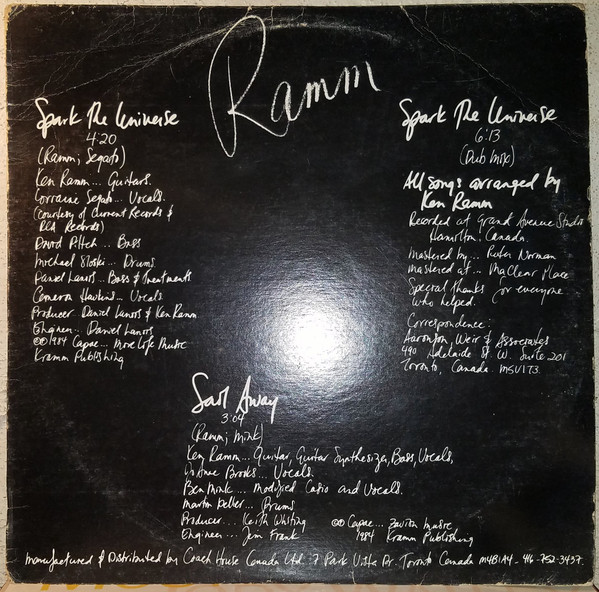 Ramm
Spark The Universe
4:20
(Ramm; Segato)
Ken Ramm... Guitars.
Lorraine Segato... Vocals.
(courtesy of Current Records &
RCA Records)
David Piltch... Bass
Michael Sloski... Drums.
Daniel Lanois... Bass & Treatments
Cameron Hawkins... Vocals.
Producer Daniel Lanois & Ken Ramm.
Engineer... Daniel Lanois
©℗ 1984 Capac... More Life Music
Kramm Publishing
Spark The Universe
6:13
(Dub Mix)
All songs arranged by
Ken Ramm
Recorded at Grand Avenue Studio
Hamilton. Canada.
Mastered by... Peter Norman
mastered at... MaClear Place
Special thanks for everyone
who helped.
Correspondence:
Aaronson, Weir & Associates
490 Adelaide St. W. Suite 201
Toronto, Canada. M5V1T3.
Sail Away
3:04
(Ramm; Mink)
Ken Ramm... Guitar, Guitar Synthesizer, Bass, Vocals,
Brooks... Vocals.
Ben Mink... Modified Casio and Vocals.
Martin Deller... Drums
Producer... Keith Whiting
Engineer... Jim Frank
©℗ Capac... Zavion Music
1984 Kramm Publishing
Manufactured & Distributed by Coach House Canada Ltd. 7 Park Vista Dr. Toronto Canada M4B1A4- 416-752-3437.